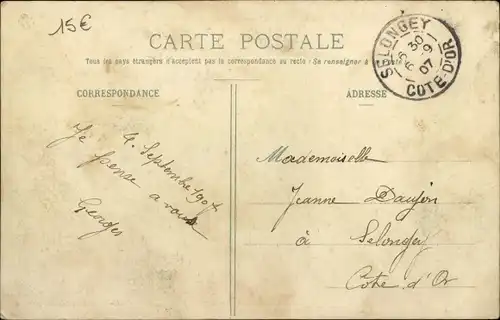 15€
CARTE POSTALE
Tous les pays étrangers n'acceptent pas la correspondance au recto (Se renseigner à la Poste)
CORRESPONDANCE
ADRESSE
SELONGEY
6 30
6 9
07
COTE-D'OR
4 Septembre 1907
Je pense a vous
Georges
Mademoiselle
Jeanne
à Selongey
Cote d'Or